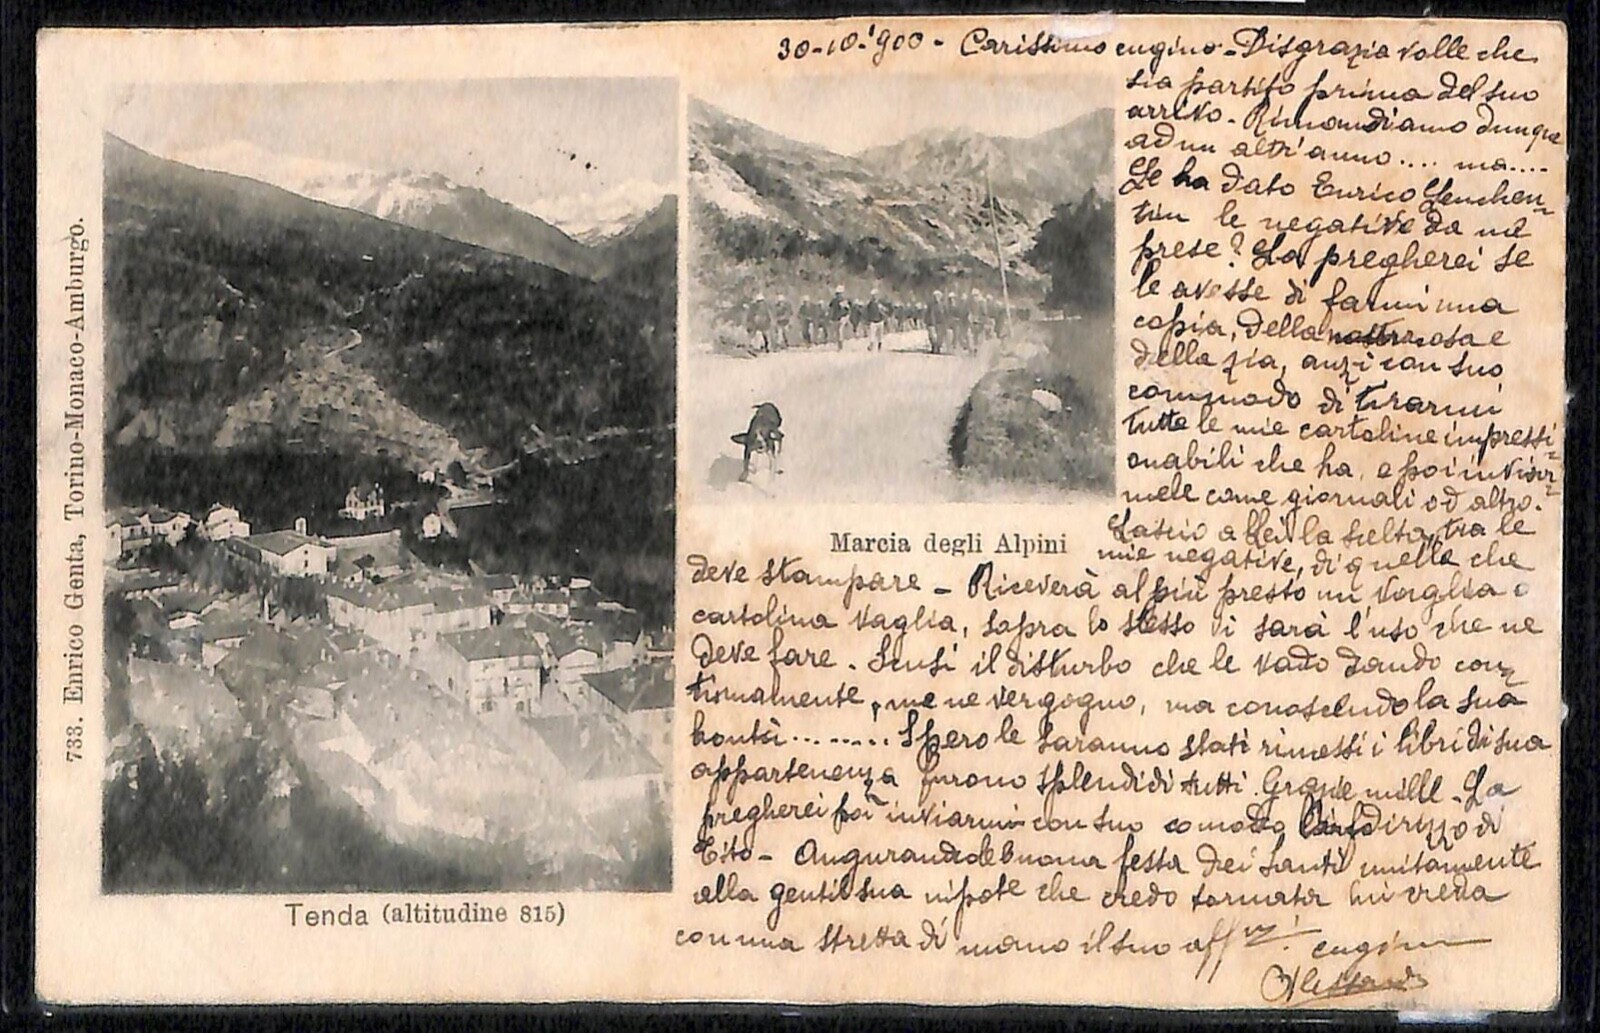 30-10-'900 - Carissimo cugino - Disgrazia volle che
sia partito prima del suo
arrivo - Rimandiamo dunque
ad un altr'anno.... ma....
Le ha dato Enrico
le negative da me
prese? La pregherei se
le avesse di farmi una
copia, della e
della zia, anzi con suo
commodo di tirarmi
tutte le mie cartoline impressi-
onabili che ha, e poi inviar-
mele come giornali od altro.
Lascio a Lei la scelta, tra le
mie negative, di quelle che
deve stampare - Riceverà al più presto un vaglia o
cartolina vaglia, saprà lo stesso di sarà l'uso che ne
deve fare. Scusi il disturbo che le vado dando con-
tinuamente, me ne vergogno, ma conoscendo la sua
bontà......... Spero le saranno stati rimessi i libri di sua
appartenenza furono splendidi tutti. Grazie mille - La
pregherei poi inviarmi con suo comodo l'indirizzo di
Tito - Augurandole buona festa dei Santi unitamente
alla gentil sua nipote che credo tornata mi creda
con una stretta di mano il suo aff.mo cugino
Alessandro
Marcia degli Alpini
Tenda (altitudine 815)
733. Enrico Genta, Torino-Monaco-Amburgo.